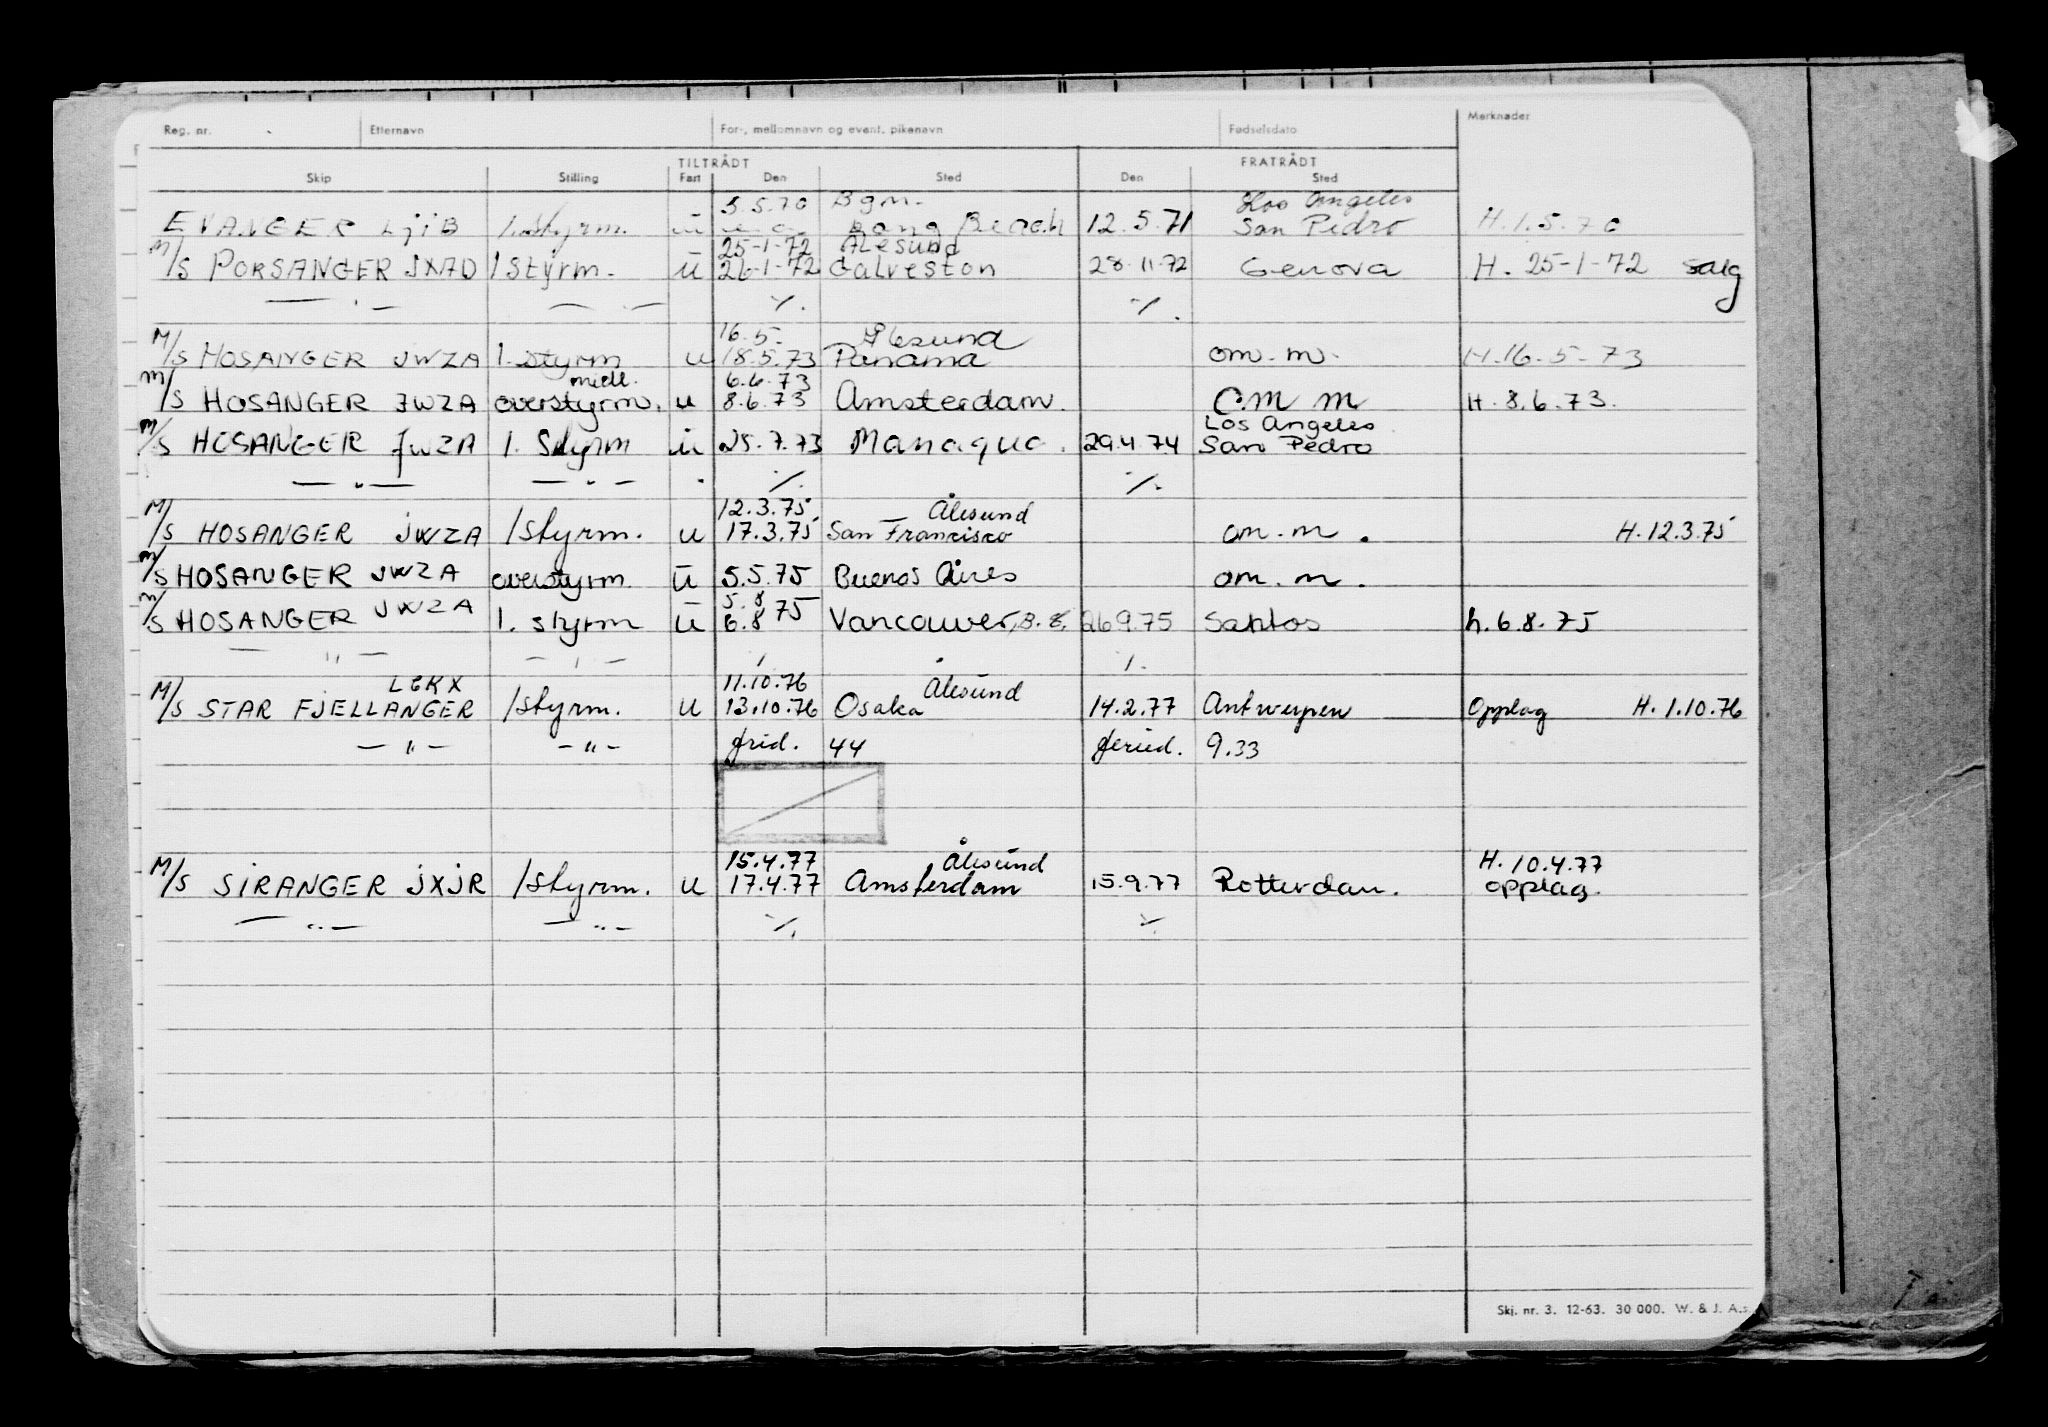 Reg. nr. Etternavn For-, mellomnavn og event. pikenavn Fødselsdato Merknader
TILTRÅDT FRATRÅDT
Skip Stilling Fart Den Sted Den Sted
5.5.70 Bgm. Los Angeles
EVANGER LjiB 1.styrm. u Long Beach 12.5.71 San Pedro H.1.5.70
25-1-72 Ålesund
M/S PORSANGER JXAD 1 styrm. u 26-1-72 Galveston 28.11.72 Genova H. 25-1-72 salg
— " — — " — ./. ./.
16.5. Ålesund
M/S HOSANGER JWZA 1. styrm u 18.5.73 Panama om. m. H.16.5-73
midl. 6.6.73
M/S HOSANGER JWZA overstyrm. u 8.6.73 Amsterdam. om m H. 8.6.73.
Los Angeles
M/S HOSANGER JWZA 1. Styrm u 25.7.73 Managua. 29.4.74 San Pedro
— " — — " — ./. ./.
12.3.75 Ålesund
M/S HOSANGER JWZA 1styrm. u 17.3.75 San Francisco om. m. H. 12.3.75
M/S HOSANGER JWZA overstyrm. u 5.5.75 Buenos Aires om. m.
5.8
M/S HOSANGER JWZA 1. styrm u 6.8 75 Vancouver, B.C. 26.9.75 Santos h.6.8.75
— " — — " — ./. ./.
LEKX 11.10.76 Ålesund
M/S STAR FJELLANGER 1styrm. u 13.10.76 Osaka 14.2.77 Antwerpen Opplag H. 1.10.76
— " — — " — frid. 44 feried. 9.33
15.4.77 Ålesund H. 10.4.77
M/S SIRANGER JXJR 1styrm. u 17.4.77 Amsterdam 15.9.77 Rotterdam. opplag.
— " — — " — ./. ./.
Skj. nr. 3. 12-63. 30 000. W. & J. A.s